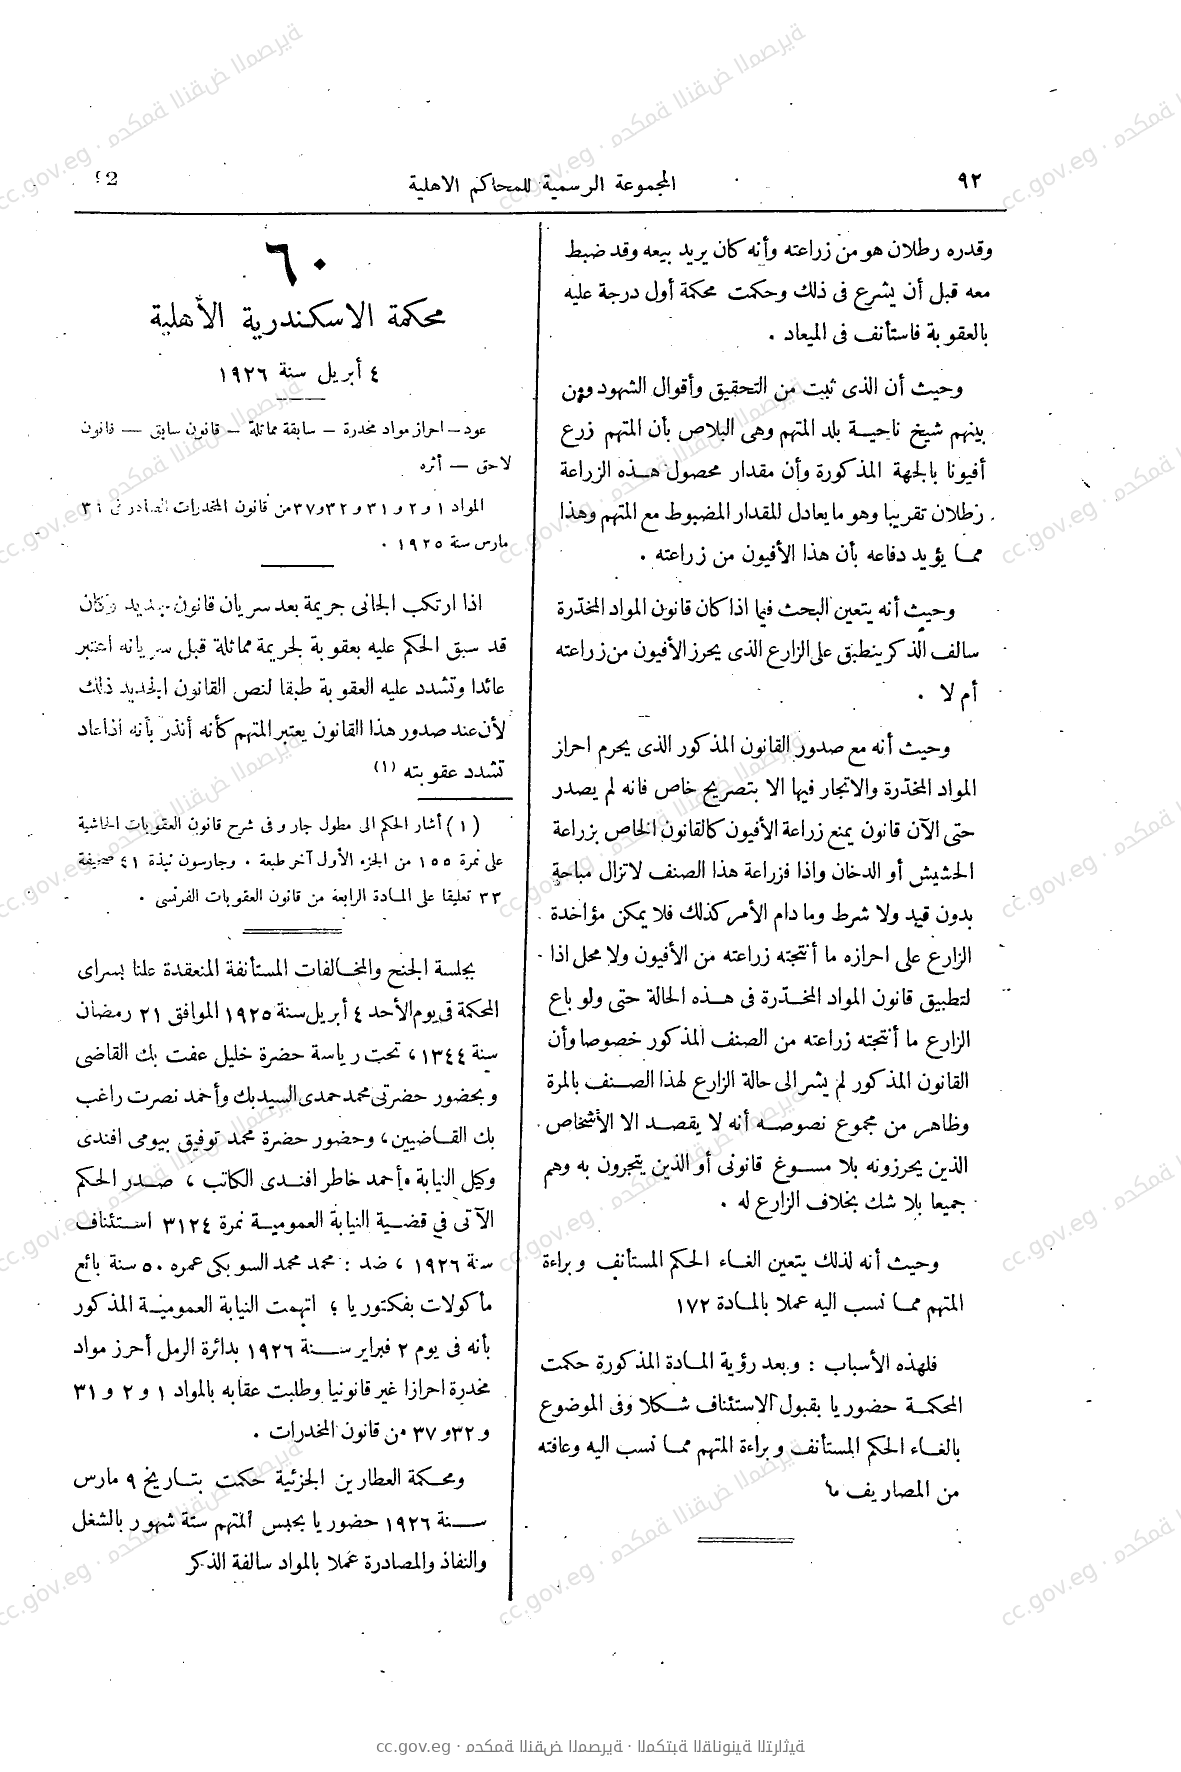 ٩٢
المجموعة الرسمية للمحاكم الاهلية
92
وقدره رطلان هو من زراعته وأنه كان يريد بيعه وقد ضبط
معه قبل أن يشرع فى ذلك وحكمت محكمة أول درجة عليه
بالعقوبة فاستأنف فى الميعاد .
وحيث أن الذى ثبت من التحقيق وأقوال الشهود ومن
بينهم شيخ ناحيـة بلد المتهم وهى البلاص بأن المتهم زرع
أفيونا بالجهة المذكورة وأن مقدار محصول هـذه الزراعة
رطلان تقريبا وهو ما يعادل للمقدار المضبوط مع المتهم وهذا
ممـا يؤيد دفاعه بأن هذا الأفيون من زراعته .
وحيث أنه يتعين البحث فيما اذا كان قانون المواد المخدّرة
سالف الذكر ينطبق على الزارع الذى يحرز الأفيون من زراعته
أم لا .
وحيث أنه مع صدور القانون المذكور الذى يحرم احراز
المواد المخدّرة والاتجار فيها الا بتصريح خاص فانه لم يصدر
حتى الآن قانون يمنع زراعة الأفيون كالقانون الخاص بزراعة
الحشيش أو الدخان واذا فزراعة هذا الصنف لا تزال مباحة
بدون قيد ولا شرط وما دام الأمر كذلك فلا يمكن مؤاخدة
الزارع على احرازه ما أنتجته زراعته من الأفيون ولا محل اذا
لتطبيق قانون المواد المخـدّرة فى هـذه الحالة حتى ولو باع
الزارع ما أنتجته زراعته من الصنف المذكور خصوصا وأن
القانون المذكور لم يشر الى حالة الزارع لهذا الصـنف بالمرة
وظاهر من مجموع نصوصـه أنه لا يقصـد الا الأشخاص
الذين يحرزونه بلا مسـوغ قانونى أو الذين يتجرون به وهم
جميعا بلا شك بخلاف الزارع له .
وحيث أنه لذلك يتعين الغـاء الحكم المستأنف وبراءة
المتهم ممـا نسب اليه عملا بالمـادة ١٧٢
فلهذه الأسباب : وبعد رؤية المـادة المذكورة حكمت
المحكمـة حضوريا بقبول الاستئناف شـكلا وفى الموضوع
بالغـاء الحكم المستأنف وبراءة المتهم ممـا نسب اليه وعافته
من المصاريف ما
٦٠
محكمة الاسكندرية الأهلية
٤ أبريل سنة ١٩٢٦
عود – احراز مواد مخدرة – سابقة مماثلة – قانون سابق – قانون
لاحق – أثره
المواد ١ و٢ و٣١ و٣٢ و٣٧ من قانون المخدرات الصادر فى ٢١
مارس سنة ١٩٢٥ .
اذا ارتكب الجانى جريمة بعد سريان قانون جديد وكان
قد سبق الحكم عليه بعقوبة لجريمة مماثلة قبل سريانه اعتبر
عائدا وتشدد عليه العقوبة طبقا لنص القانون الجديد ذلك
لأن عند صدور هذا القانون يعتبر المتهم كأنه أنذر بأنه اذا عاد
تشدد عقوبته (١)
(١) أشار الحكم الى مطول جارو فى شرح قانون العقوبات الحاشية
على نمرة ١٥٥ من الجزء الأول آخر طبعة . وجارسون نبذة ٤١ صحيفة
٣٣ تعليقا على المـادة الرابعة من قانون العقوبات الفرنسى .
بجلسة الجنح والمخـالفات المستأنفة المنعقدة علنا بسراى
المحكمة فى يوم الأحد ٤ أبريل سنة ١٩٢٥ الموافق ٢١ رمضان
سنة ١٣٤٤، تحت رياسة حضرة خليل عفت بك القاضى
وبحضور حضرتى محمد حمدى السيد بك وأحمد نصرت راغب
بك القـاضيين، وحضور حضرة محمد توفيق بيومى افندى
وكيل النيابة وأحمد خاطر افنـدى الكاتب ، صـدر الحكم
الآتى فى قضـية النيابة العموميـة نمرة ٣١٢٤ اسـتئناف
سنة ١٩٢٦ ، ضد : محمد محمد السوبكى عمره ٥٠ سنة بائع
مأكولات بفكتوريا ؛ اتهمت النيابة العموميـة المذكور
بأنه فى يوم ٢ فبراير ســنة ١٩٢٦ بدائرة الرمل أحرز مواد
مخدرة احرازا غير قانونيا وطلبت عقابه بالمواد ١ و ٢ و ٣١
و ٣٢ و ٣٧ من قانون المخدرات .
ومحـكمة العطارين الجزئية حكمت بتـاريخ ٩ مارس
ســنة ١٩٢٦ حضوريا بحبس المتهم ستة شهور بالشغل
والنفاذ والمصادرة عملا بالمواد سالفة الذكر
cc.gov.eg · محكمة النقض المصرية · المكتبة القانونية التراثية